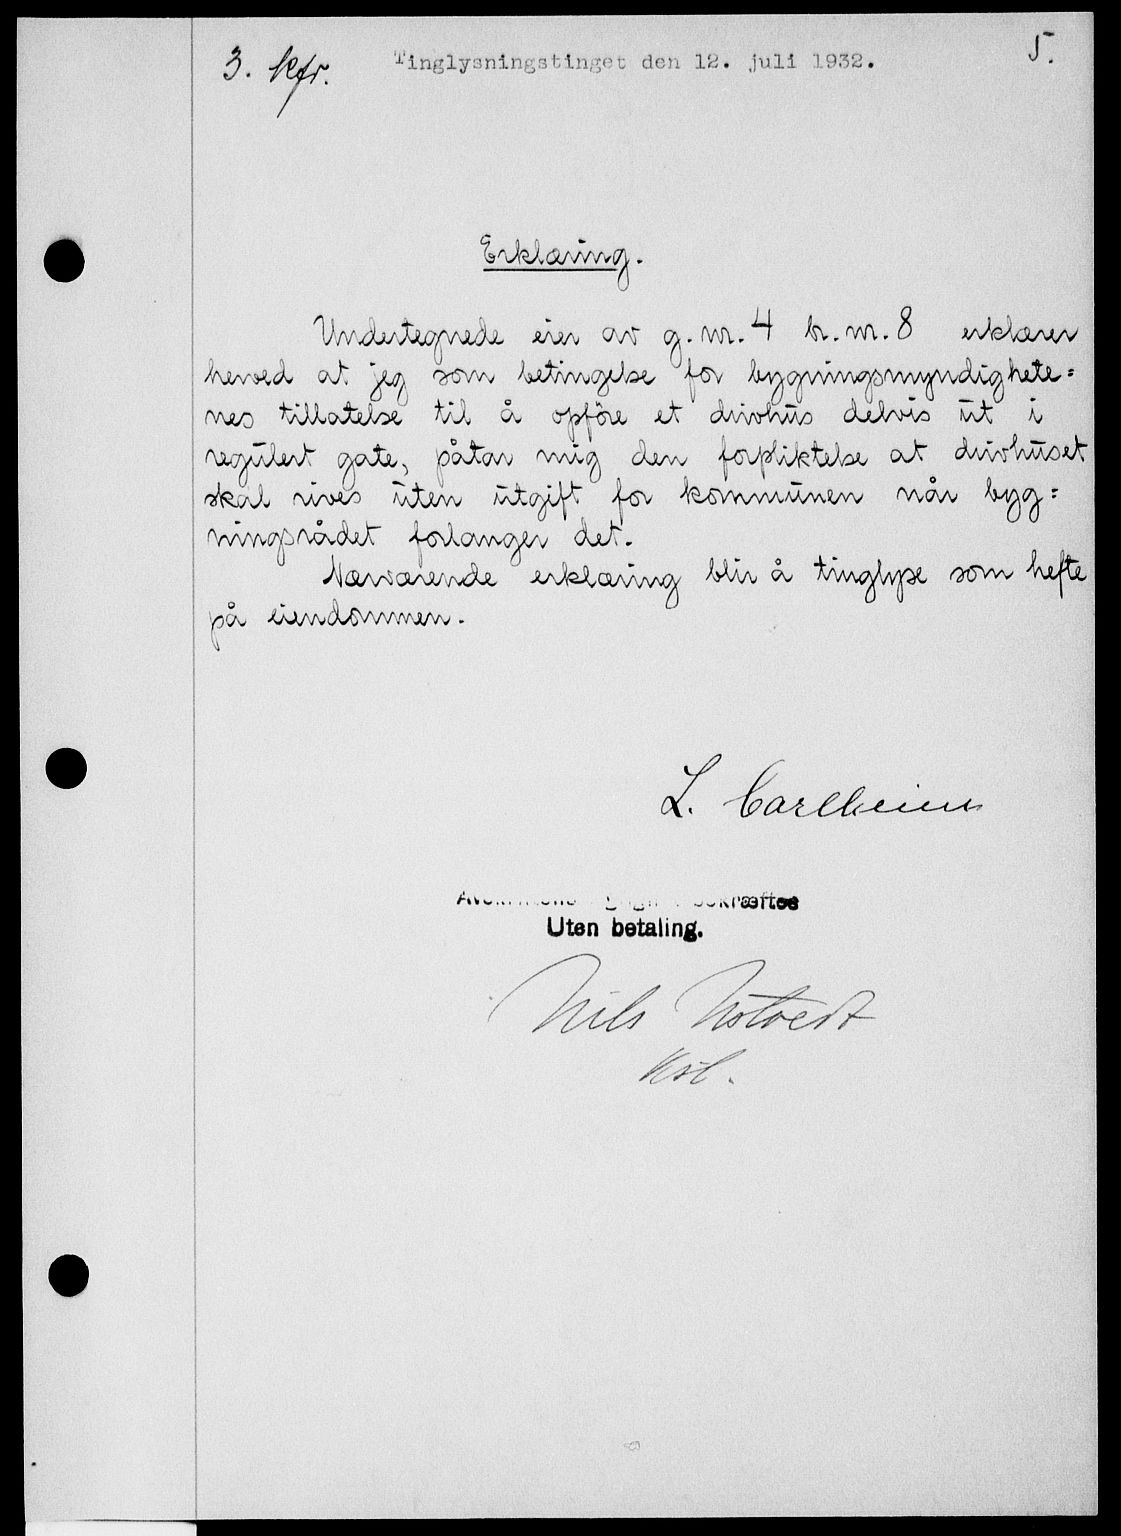 3. kfr. Tinglysningstinget den 12. juli 1932. 5.
Erklæring.
Undertegnede eier av g.nr. 4 br.nr. 8 erklærer
herved at jeg som betingelse for bygningsmyndighete=
nes tillatelse til å opföre et drivhus delvis ut i
regulert gate, påtar mig den forpliktelse at drivhuset
skal rives uten utgift for kommunen når byg=
ningsrådet forlanger det.
Nærværende erklæring blir å tinglyse som hefte
på eiendommen.
L. Carlheim
bekræftes
Uten betaling.
Nils